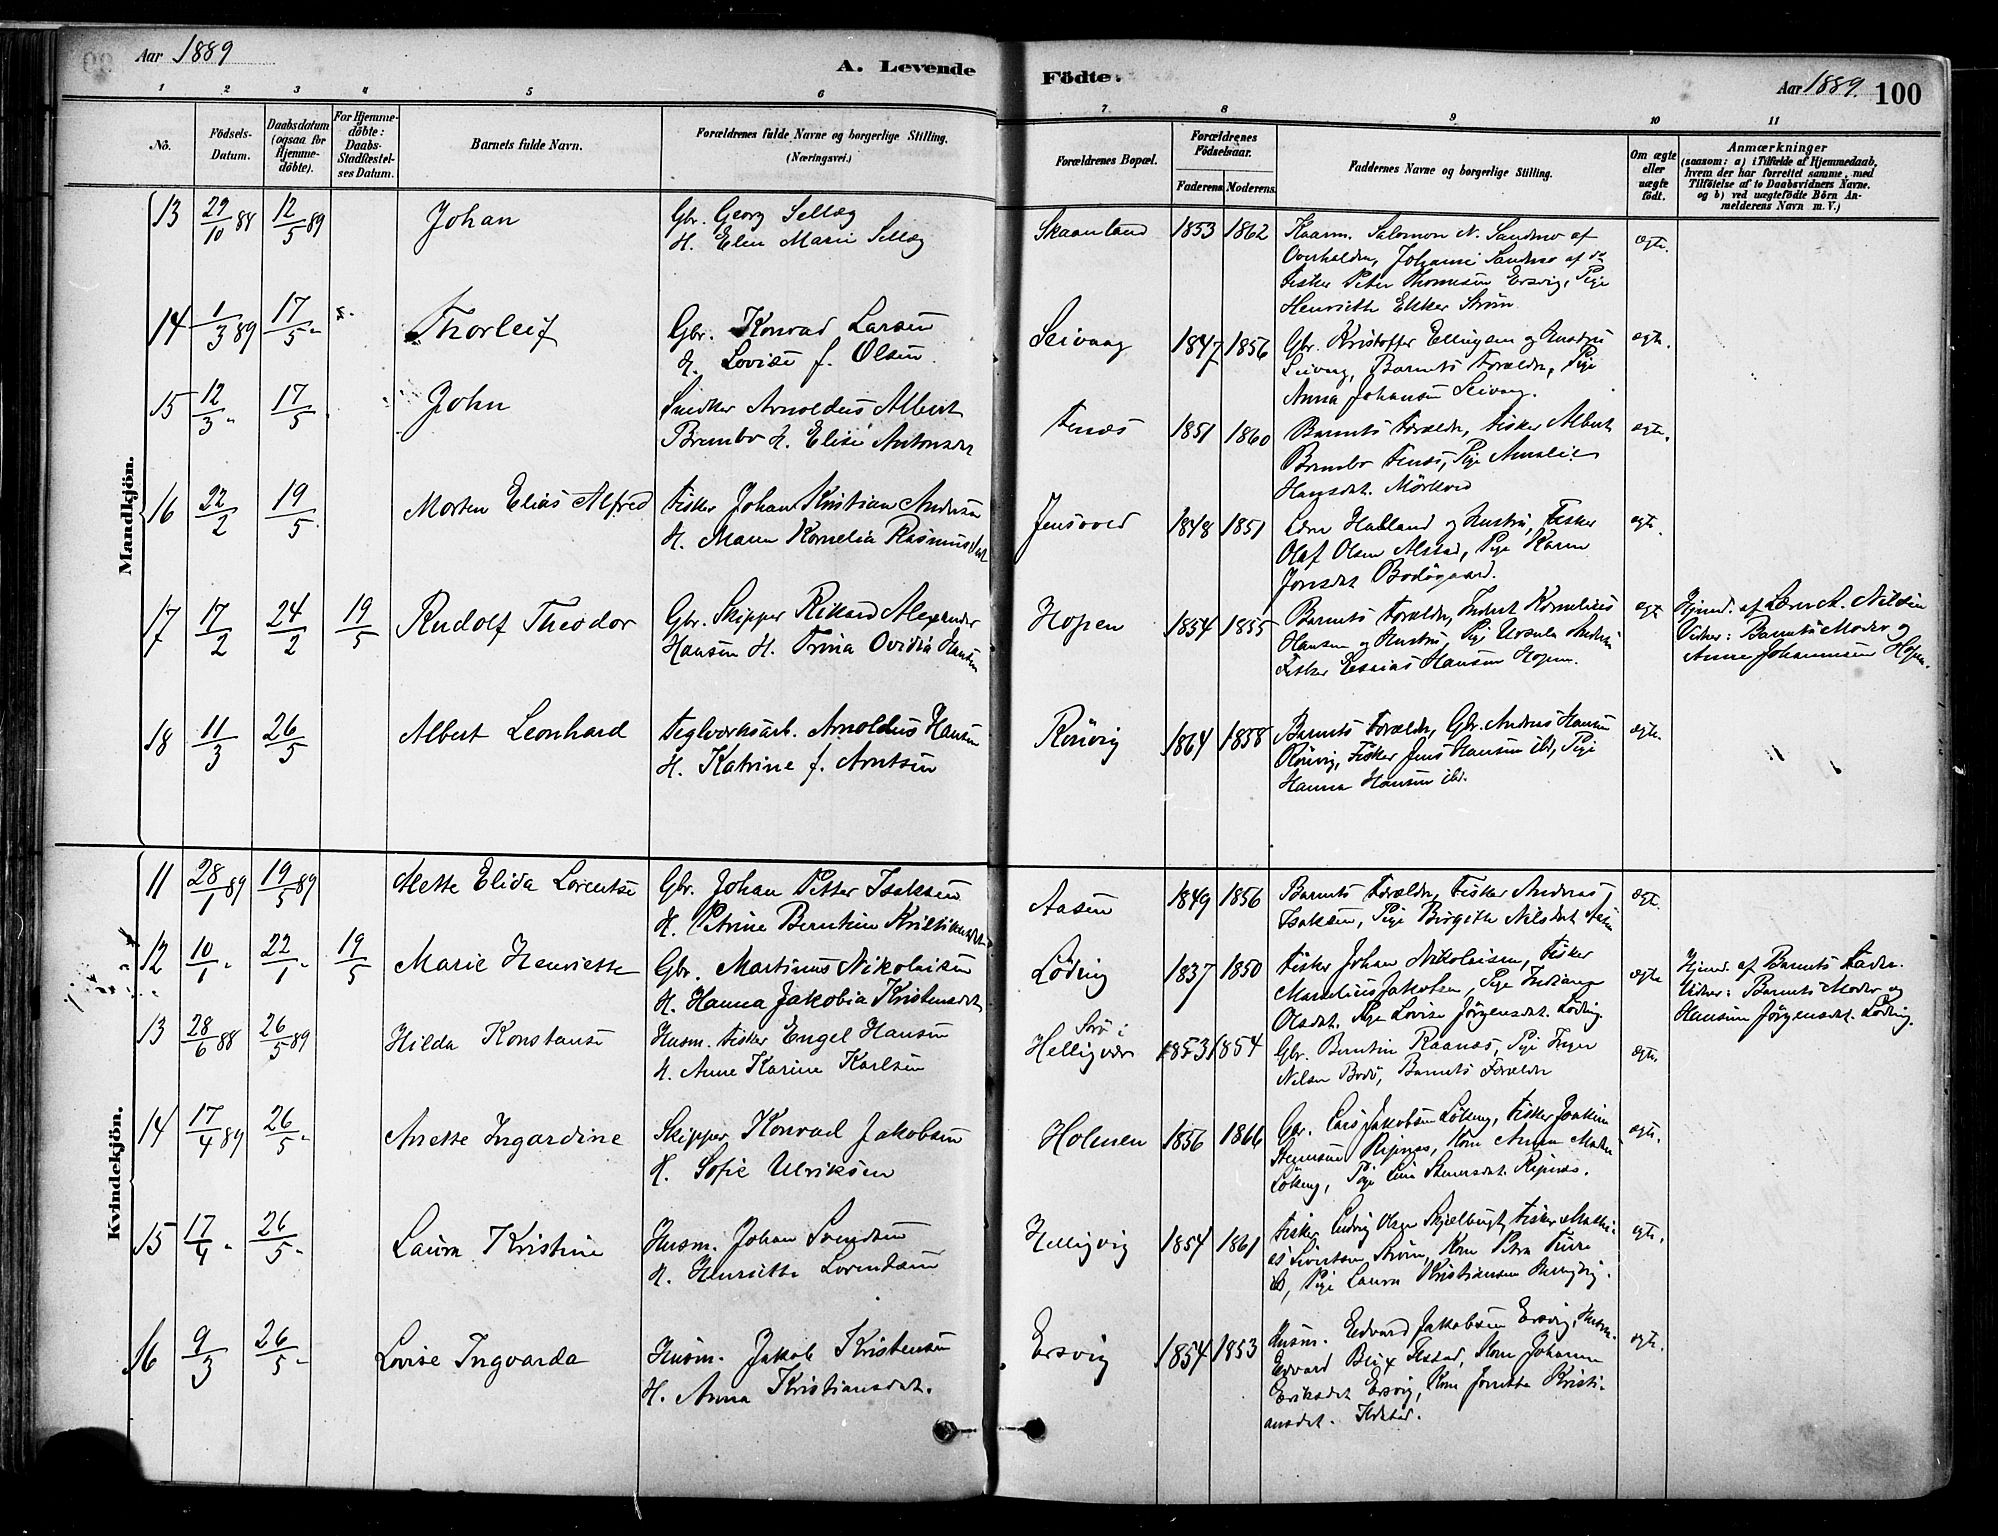 Aar 1889
A. Levende
Födte.
Aar 1889.
100
1 2 3 4 5 6
7 8 9 10 11
No.
Födsels-
Datum.
Daabsdatum
(ogsaa for
Hjemme-
döbte).
For Hjemme-
döbte:
Daabs-
Stadfæstel-
ses Datum.
Barnets fulde Navn.
Forældrenes fulde Navne og borgerlige Stilling.
(Næringsvei.)
Forældrenes Bopæl.
Forældrenes
Födselsaar.
Faderens. Moderens.
Faddernes Navne og borgerlige Stilling.
Om ægte
eller
uægte
födt.
Anmærkninger
(saasom: a) i Tilfælde af Hjemmedaab,
hvem der har forrettet samme, med
Tilföielse af to Daabsvidners Navne.
og b) ved uægtefödte Börn An-
melderens Navn m. V.)
Mandkjön.
13 29/10 88 12/5 89 Johan
Gbr. Georg Selläg
H. Elen Marie Selläg
Skaanland 1853 1862
Kaarm. Salomon N. Sandmo af
Overhalden, Johanne Sandmo af do
Fisker Peter Thomesen Ersvig, Pige
Henriette Ström
ægte.
14 1/3 89 17/5 " Thorleif
Gbr. Konrad Larsen
H. Lovise f. Olsen.
Seivaag 1847 1856
Gbr. Kristoffer Ellingsen og Hustru
Seivaag, Barnets Forældre, Pige
Anna Johansen Seivaag.
ægte.
15 12/3 " 17/5 John
Snedker Arnoldus Albert
Brembo H. Elise Antonsdat
Fenæs 1851 1860
Barnets Forældre, Fisker Albert
Brembo Fenæs, Pige Amalie
Hansdat. Mörkved
ægte.
16 22/2 19/5 Morten Elias Alfred
Fisker Johan Kristian Andersen
H. Maren Kornelia Rasmusdat
Jensvold 1848 1851
Lærer Halland og Hustru, Fisker
Olaf Olsen Alstad, Pige Karen
Jonsdat Bodögaard.
ægte.
17 17/2 24/2 19/5 Rudolf Theodor
Gbr. Skipper Rikard Alexander
Hansen H. Trina Ovidia Hansen
Hopen 1854 1855
Barnets Forældre, Kornelius
Hansen og Hustru, Pige Ursula Andersen
Fisker Esaias Hansen Hopen.
ægte
Hjemd. af Lærer A. Nilsen
Vidner: Barnets Moder og
Anne Johannesen Hopen.
18 11/3 26/5 Albert Leonhard
Teglværksarb. Arnoldus Hansen
H. Katrine f. Arntsen
Rönvig 1864 1858
Barnets Forældre, Gbr. Andreas Hansen
Rönvig, Fisker Jens Hansen ibd, Pige
Hanna Hansen ibd.
ægte.
Kvindekjön.
11 28/1 89 19/5 89 Mette Elida Lorentse
Gbr. Johan Petter Isaksen
H. Petrine Berntine Kristiansdat
Aasen 1849 1856
Barnets Forældre, Fisker Andreas
Isaksen, Pige Birgitte Nilsdat Aasen
ægte.
12 10/1 " 22/1 " 19/5 Marie Henriette
Gbr. Martinus Nikolaisen
H. Hanna Jakobia Kristensdat
Löding 1837 1850
Fisker Johan Nikolaisen, Fisker
Marselius Jakobsen, Pige Indiane
Olsdat. Pige Lovise Jörgensdat. Löding
ægte
Hjemd. af Barnets Fader.
Vidner: Barnets Moder og
Hansine Jörgensdat. Löding.
13 28/6 88 26/5 89 Hilda Konstanse
Husm. Fisker Engel Hansen
H. Anne Karine Karlsen
Sörö i
Helligvær 1853 1854
Gbr. Berntin Raanæs, Pige Inger
Nilsen Bodö, Barnets Forældre
ægte.
14 17/4 89 26/5 " Anette Ingardine
Skipper Konrad Jakobsen
H. Sofie Ulriksen
Holmen 1856 1866
Gbr. Lars Jakobsen Lökeng, Fisker Joakim
Stensen Ripnæs, Kone Anna
Lökeng, Pige Lina Stensdat. Ripnæs.
ægte.
15 17/4 " 26/5 " Laura Kristine
Husm. Johan Svendsen
H. Henriette Lorendsen
Helligvig 1854 1861
Fisker Ludvig Olsen Skjelbugt, Fisker Mathi-
as Sivertsen Ström, Kone Petra
Pige Laura Kristiansen
ægte.
16 9/3 26/5 " Lovise Ingvarda
Husm. Jakob Kristensen
H. Anna Kristiansdat.
Ersvig 1854 1853
Husm. Edvard Jakobsen Ersvig, Husm.
Edvard Blix Ilstad, Kone Johanna
Eriksdat Ersvig, Kone Jonette Kristi-
ansdat. Ildstad.
ægte.